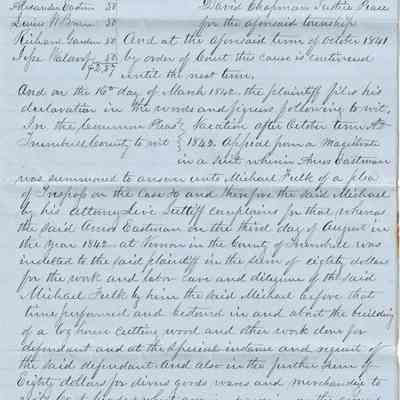 Alexander Eastin 50 David Chapman Justice Peace
Lewis W 50 for the aforesaid township
Richard Garden 50 And at the aforesaid term of October 1841
50 by order of Court this cause is continued
until the next term,
And on the 16th day of March 1842. the plaintiff files his
declaration in the words and figures following to wit,
In the Common Pleas Vacation after October term AD
Trumbull County to wit 1842. Appeal from a Magistrate
in a suit wherein Amos Eastman
was summoned to answer unto Michael Feelk of a plea
of Trespass on the Case &c and therefore the said Michael
by his attorney Levi Sutliff complains for that whereas
the said Amos Eastman on the third day of August in
the year 1842 at Vernon in the County of Trumbull was
indebted to the said plaintiff in the sum of eighty dollars
for the work and labor care and diligence of the said
Michael Feelk by him the said Michael before that
time performed and bestowed in and about the building
of a log house cutting wood and other work done for
defendant and at the special instance and request of
the said defendant And also in the further sum of
Eighty dollars for divers goods wares and merchandize by